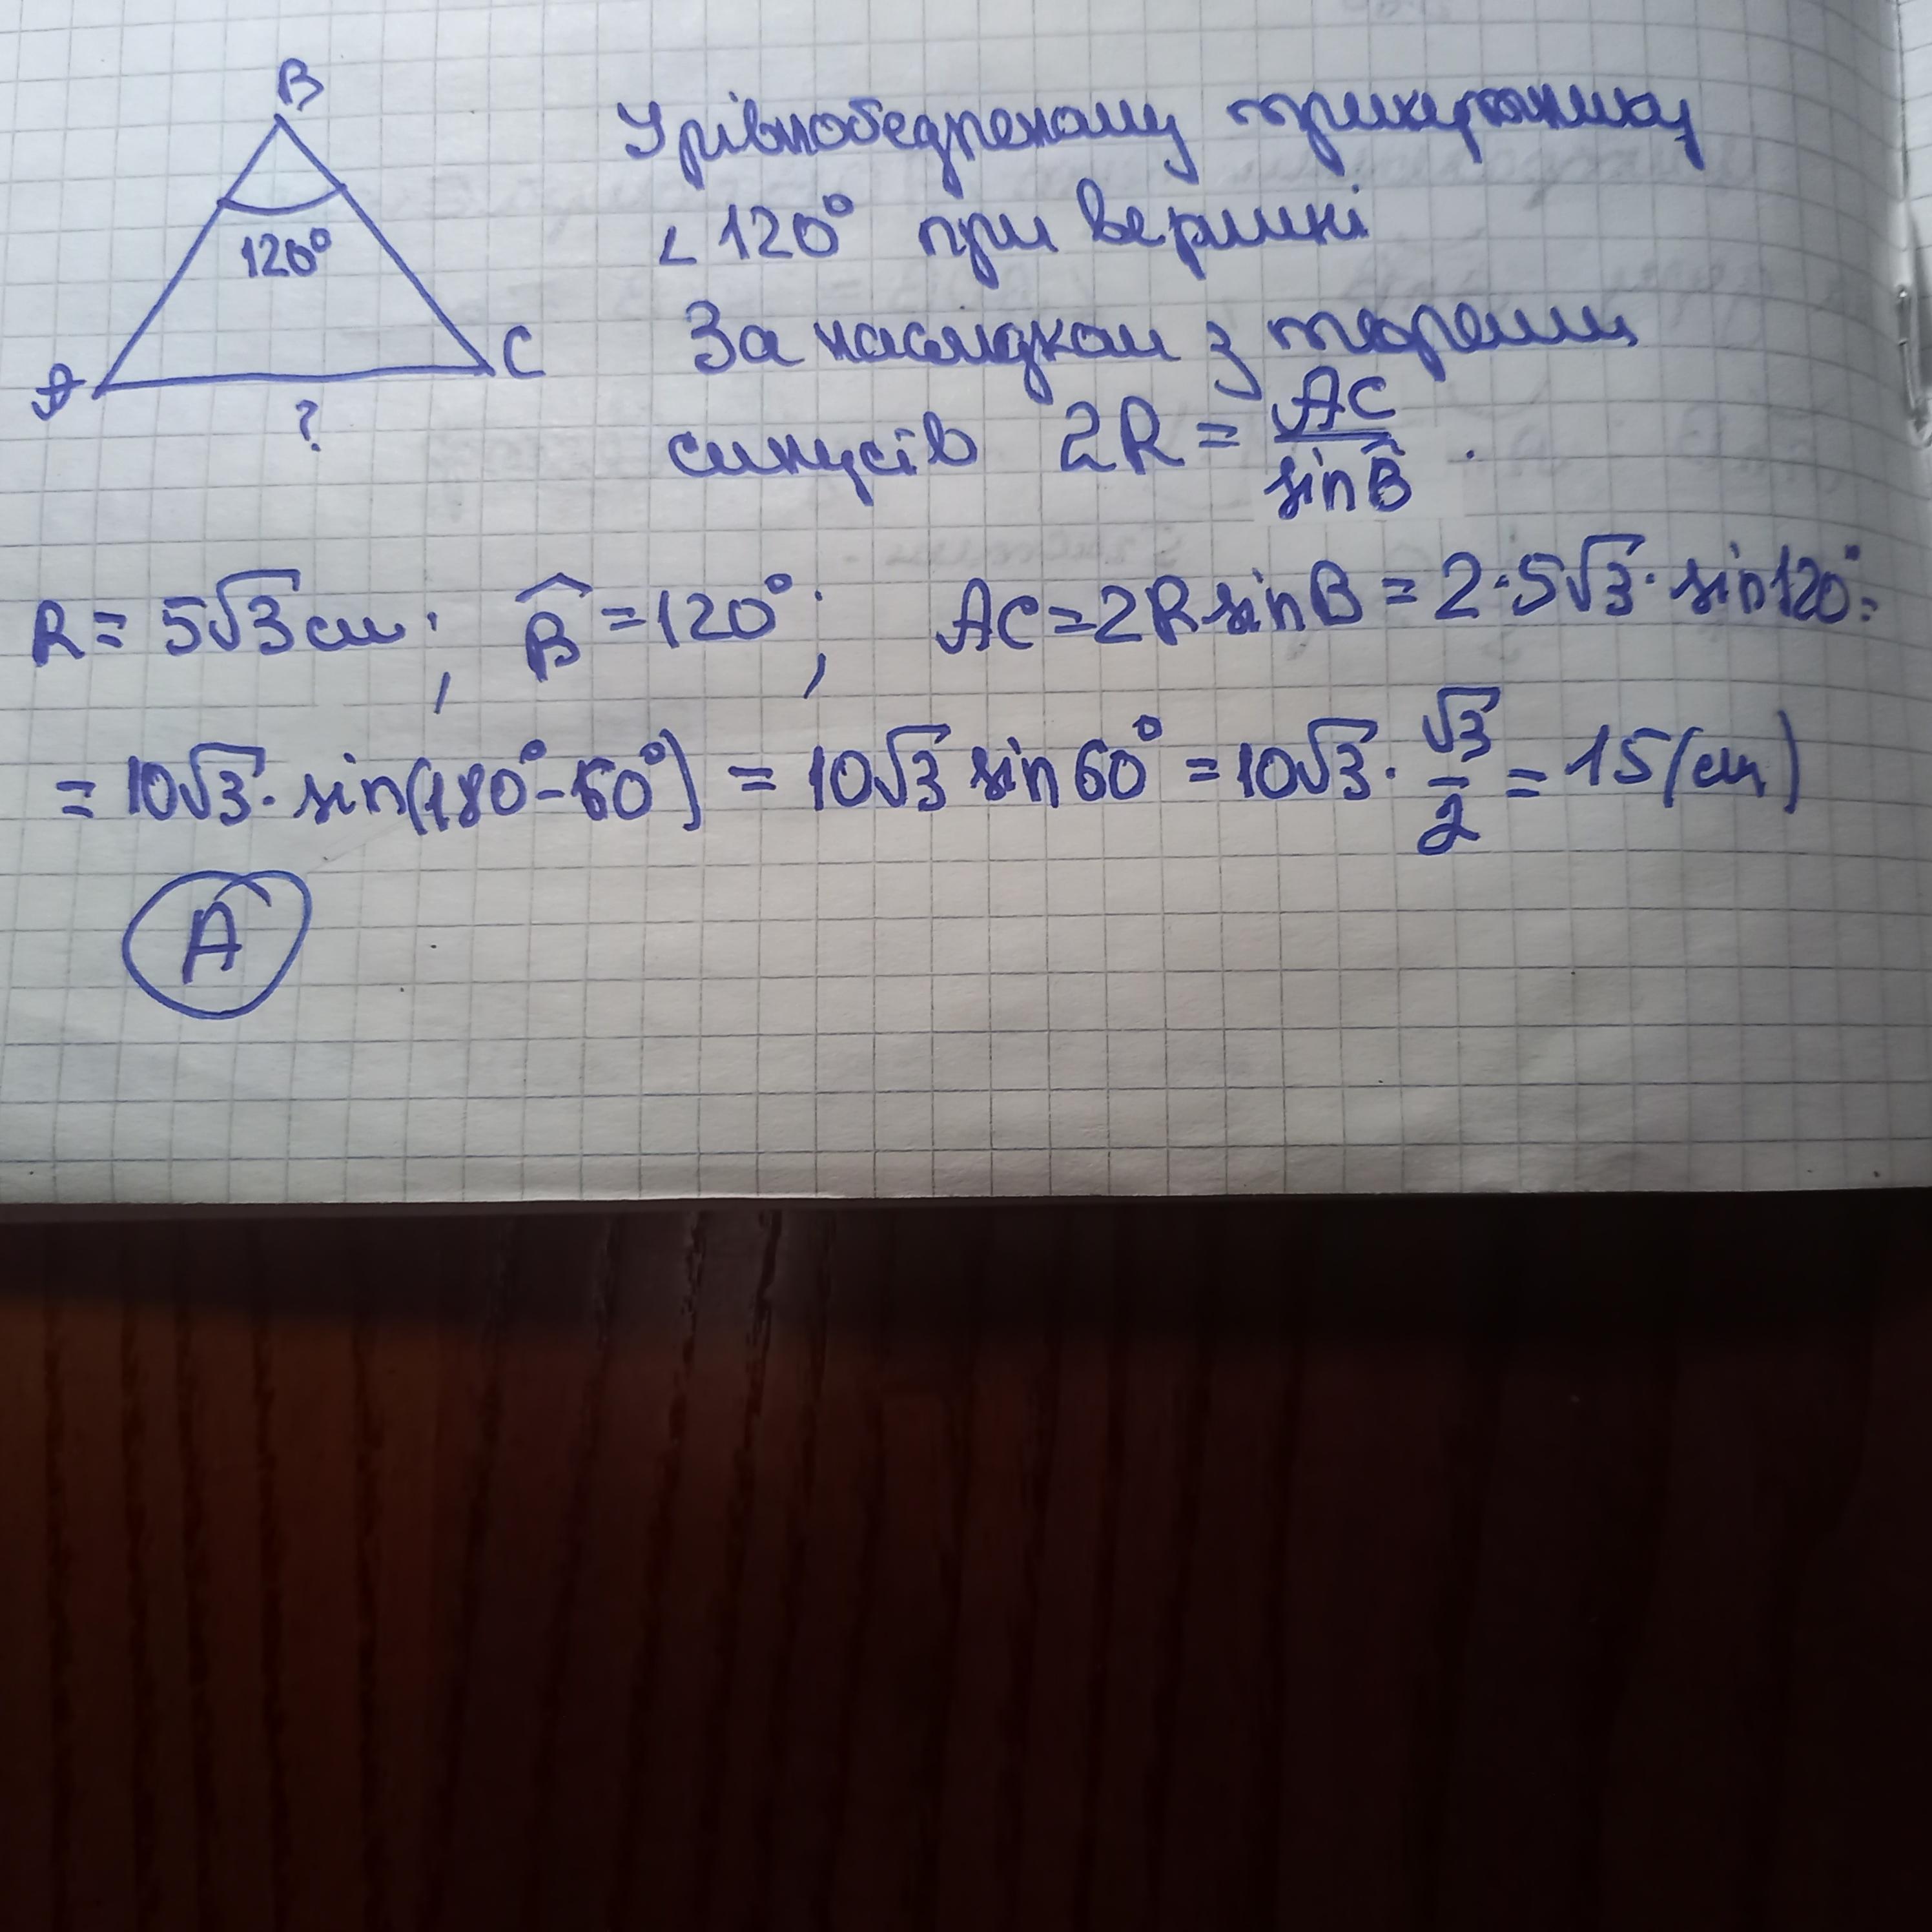 B
У рівнобедреному трикутнику
120°
< 120° при вершині
За наслідком з теореми
A
C
?
синусів 2R = AC / sin B̂.
R = 5√3 см; B̂ = 120°; AC = 2R sin B = 2·5√3·sin120° =
= 10√3·sin(180°-60°) = 10√3 sin60° = 10√3·√3/2 = 15(см)
A